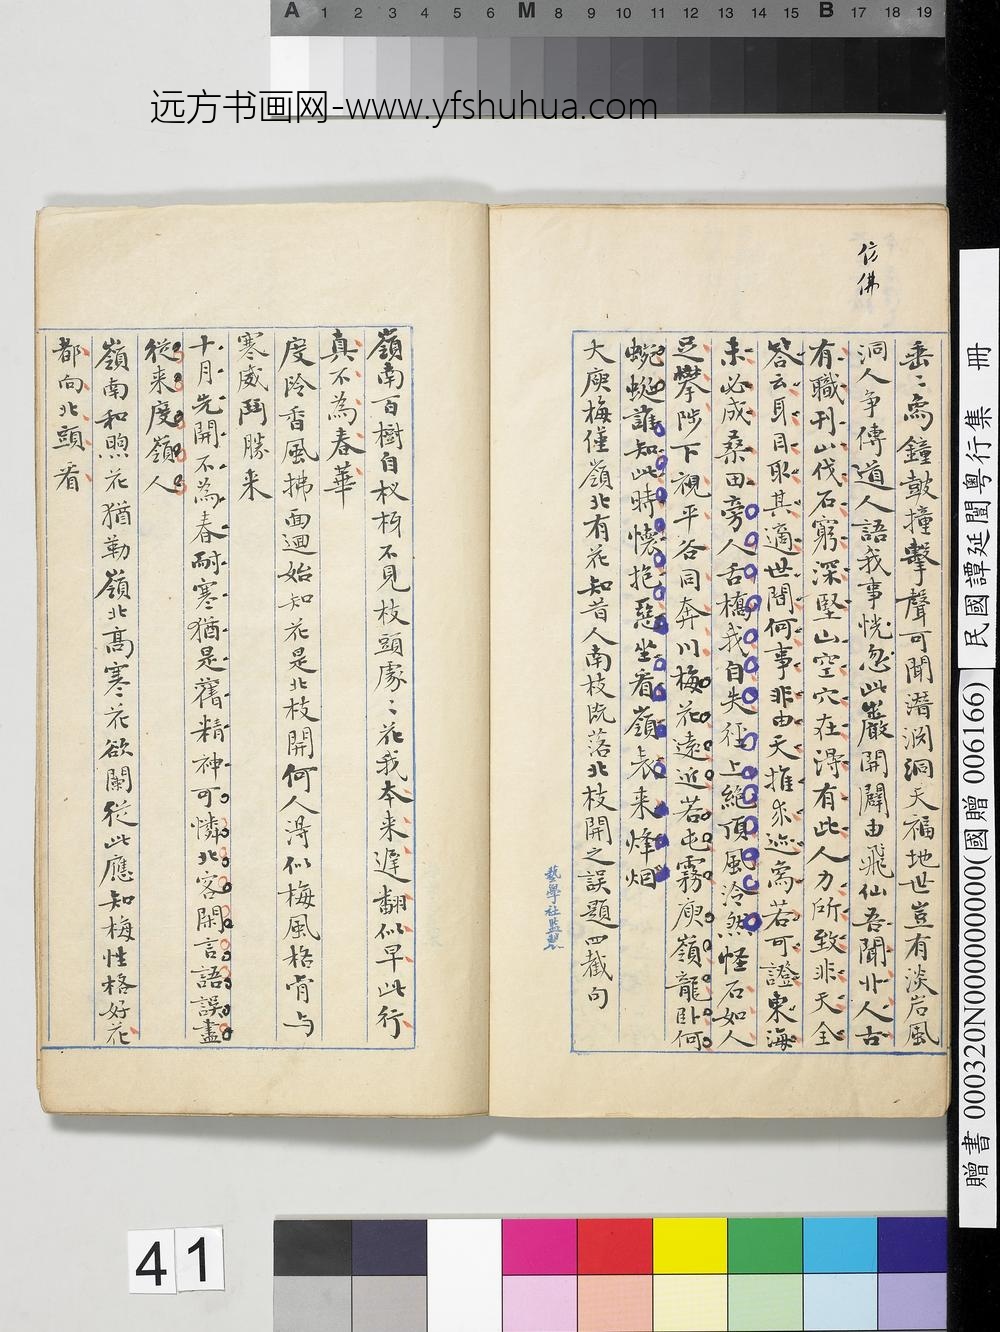 A 1 2 3 4 5 6 M 8 9 10 11 12 13 14 15 B 17 18 19
远方书画网-www.yfshuhua.com
仿佛
垂〻為鐘鼓撞擊聲可聞潛洞天福地世豈有淡岩風
洞人爭傳道人語我事恍忽此巖開闢由飛仙吾聞北人古
有職刊山伐石窮深堅山空穴在得有此人力所致非天全
答云耳目取其適世間何事非由天推求迹為若可證東海
未必成桑田旁人舌撟我自失徑上絕頂風泠然怪石如人
足攀陟下視平谷同奔川梅花遠近若屯霧庾嶺龍臥何
蜿蜒誰知此時懷抱惡坐看嶺表來烽烟
大庾梅僅嶺北有花知昔人南枝既落北枝開之誤題四截句
藝學社監製
嶺南百樹自杈枒不見枝頭處〻花我本來遲翻似早此行
真不為春華
度陰香風拂面迴始知花是北枝開何人得似梅風格肯与
寒威鬥勝來
十月先開不為春耐寒猶是舊精神可憐北客閑言語誤盡
從來度嶺人
嶺南和煦花猶勒嶺北高寒花欲闌從此應知梅性格好花
都向北頭看
贈書 000320N000000000(國贈 006166) 民國譚延闓粵行集 冊
41